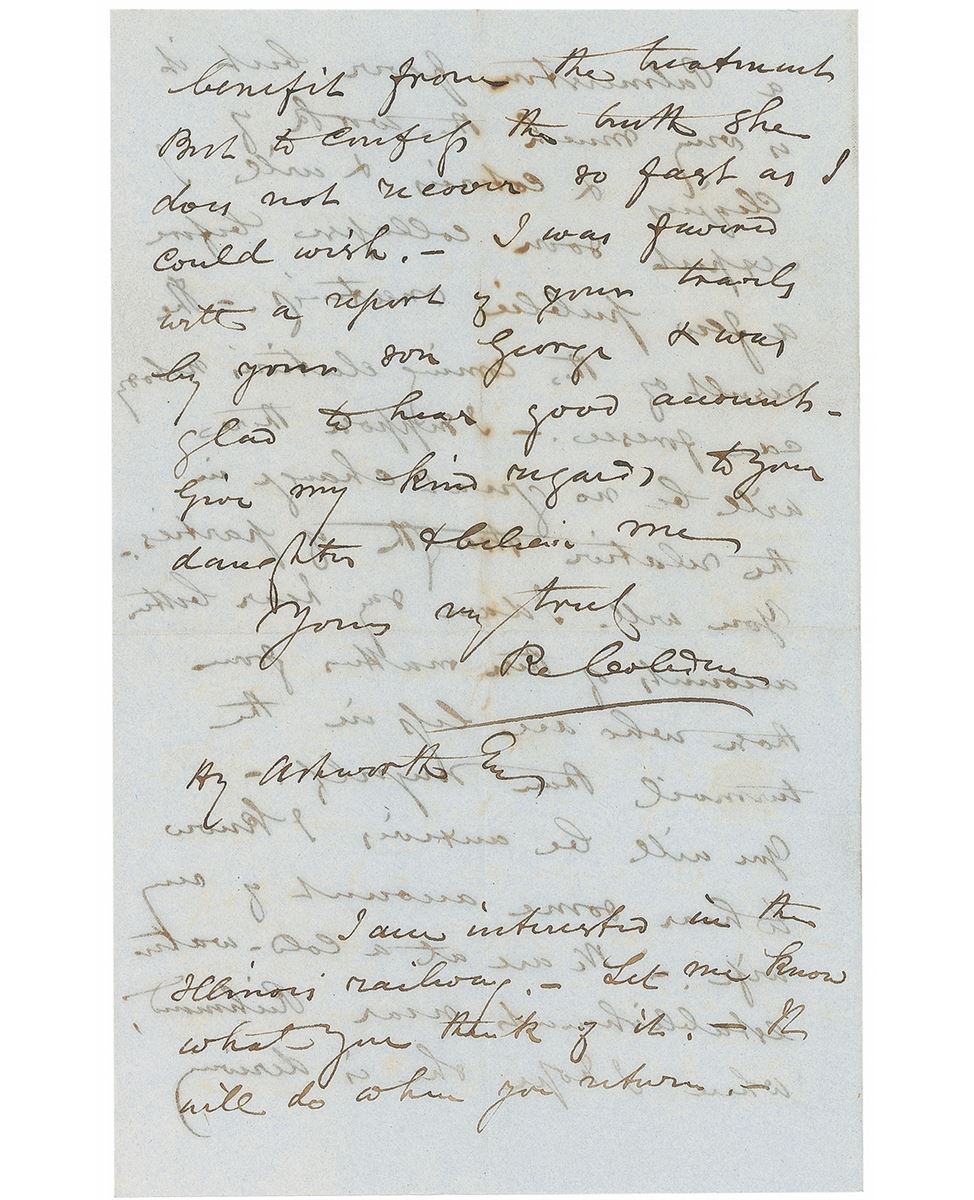 benefit from the treatment
But to confess the truth she
does not recover so fast as I
could wish. – I was favored
with a report of your travels
by your son George & was
glad to hear good accounts –
Give my kind regards to your
daughters & believe me
Yours very truly
R Cobden
Hy Ashworth Esq
I am interested in the
Illinois railway. – Let me know
what you think of it. – It
will do when you return –